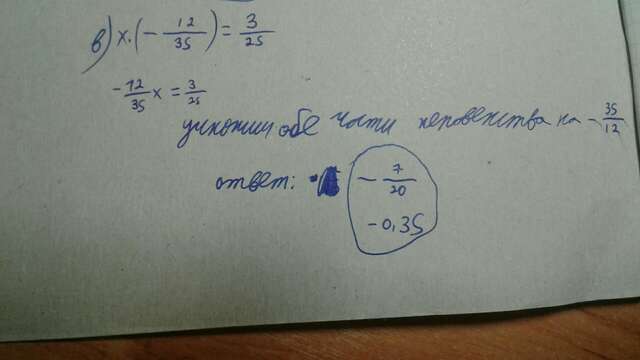 в) x·(-12/35) = 3/25
-12/35 x = 3/25
умножим обе части неравенства на -35/12
ответ: -7/20
-0,35